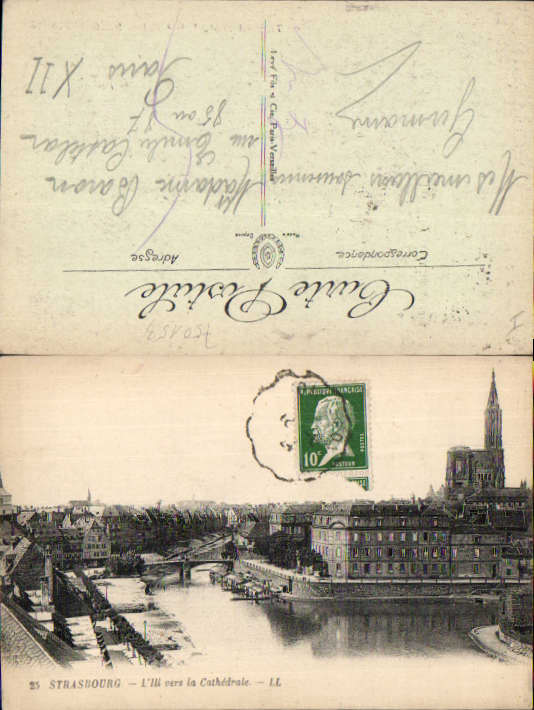 Carte Postale
Correspondance
Adresse
Mes meilleurs souvenirs
Germaine
Madame Baron
rue Emile Castelar
85 ou 87
Paris XII
Levy Fils et Cie, Paris-Versailles
750159
REPUBLIQUE FRANÇAISE
10c
POSTES
PASTEUR
25 STRASBOURG - L'Ill vers la Cathédrale. - LL